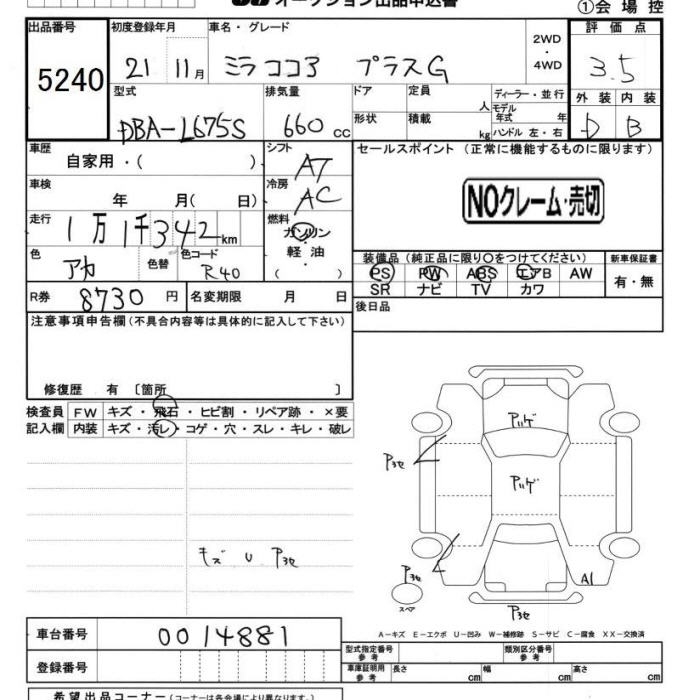 オークション出品申込書
①会場控
出品番号 初度登録年月 車名・グレード 評価点
5240 21 11月 ミラココア プラスG 2WD・4WD 3.5
型式 排気量 ドア 定員 人 ディーラー・並行 外装 内装
DBA-L675S 660cc 形状 積載 kg モデル年式 年 ハンドル 左・右 D B
車歴 自家用・( ) シフト AT セールスポイント(正常に機能するものに限ります)
車検 年 月( 日) 冷房 AC NOクレーム・売切
走行 1万1千342km 燃料 ガソリン・軽油 ( )
色 アカ 色替 色コード R40
装備品(純正品に限り○をつけてください) 新車保証書
PS PW ABS エアB AW 有・無
SR ナビ TV カワ
R券 8730円 名変期限 月 日 後日品
注意事項申告欄(不具合内容等は具体的に記入して下さい)
修復歴 有 〔箇所 〕
検査員 FW キズ・飛石・ヒビ割・リペア跡・×要
記入欄 内装 キズ・汚レ・コゲ・穴・スレ・キレ・破レ
キズ U Pヨセ
アハゲ
Pヨセ
アハゲ
Pヨセ
A1
スペア
Pヨセ
A-キズ E-エクボ U-凹み W-補修跡 S-サビ C-腐食 XX-交換済
車台番号 0014881
型式指定番号 参考 類別区分番号 参考
車庫証明用 参考 長さ cm 幅 cm 高さ cm
登録番号
希望出品コーナー(コーナーは各会場により異なります。)